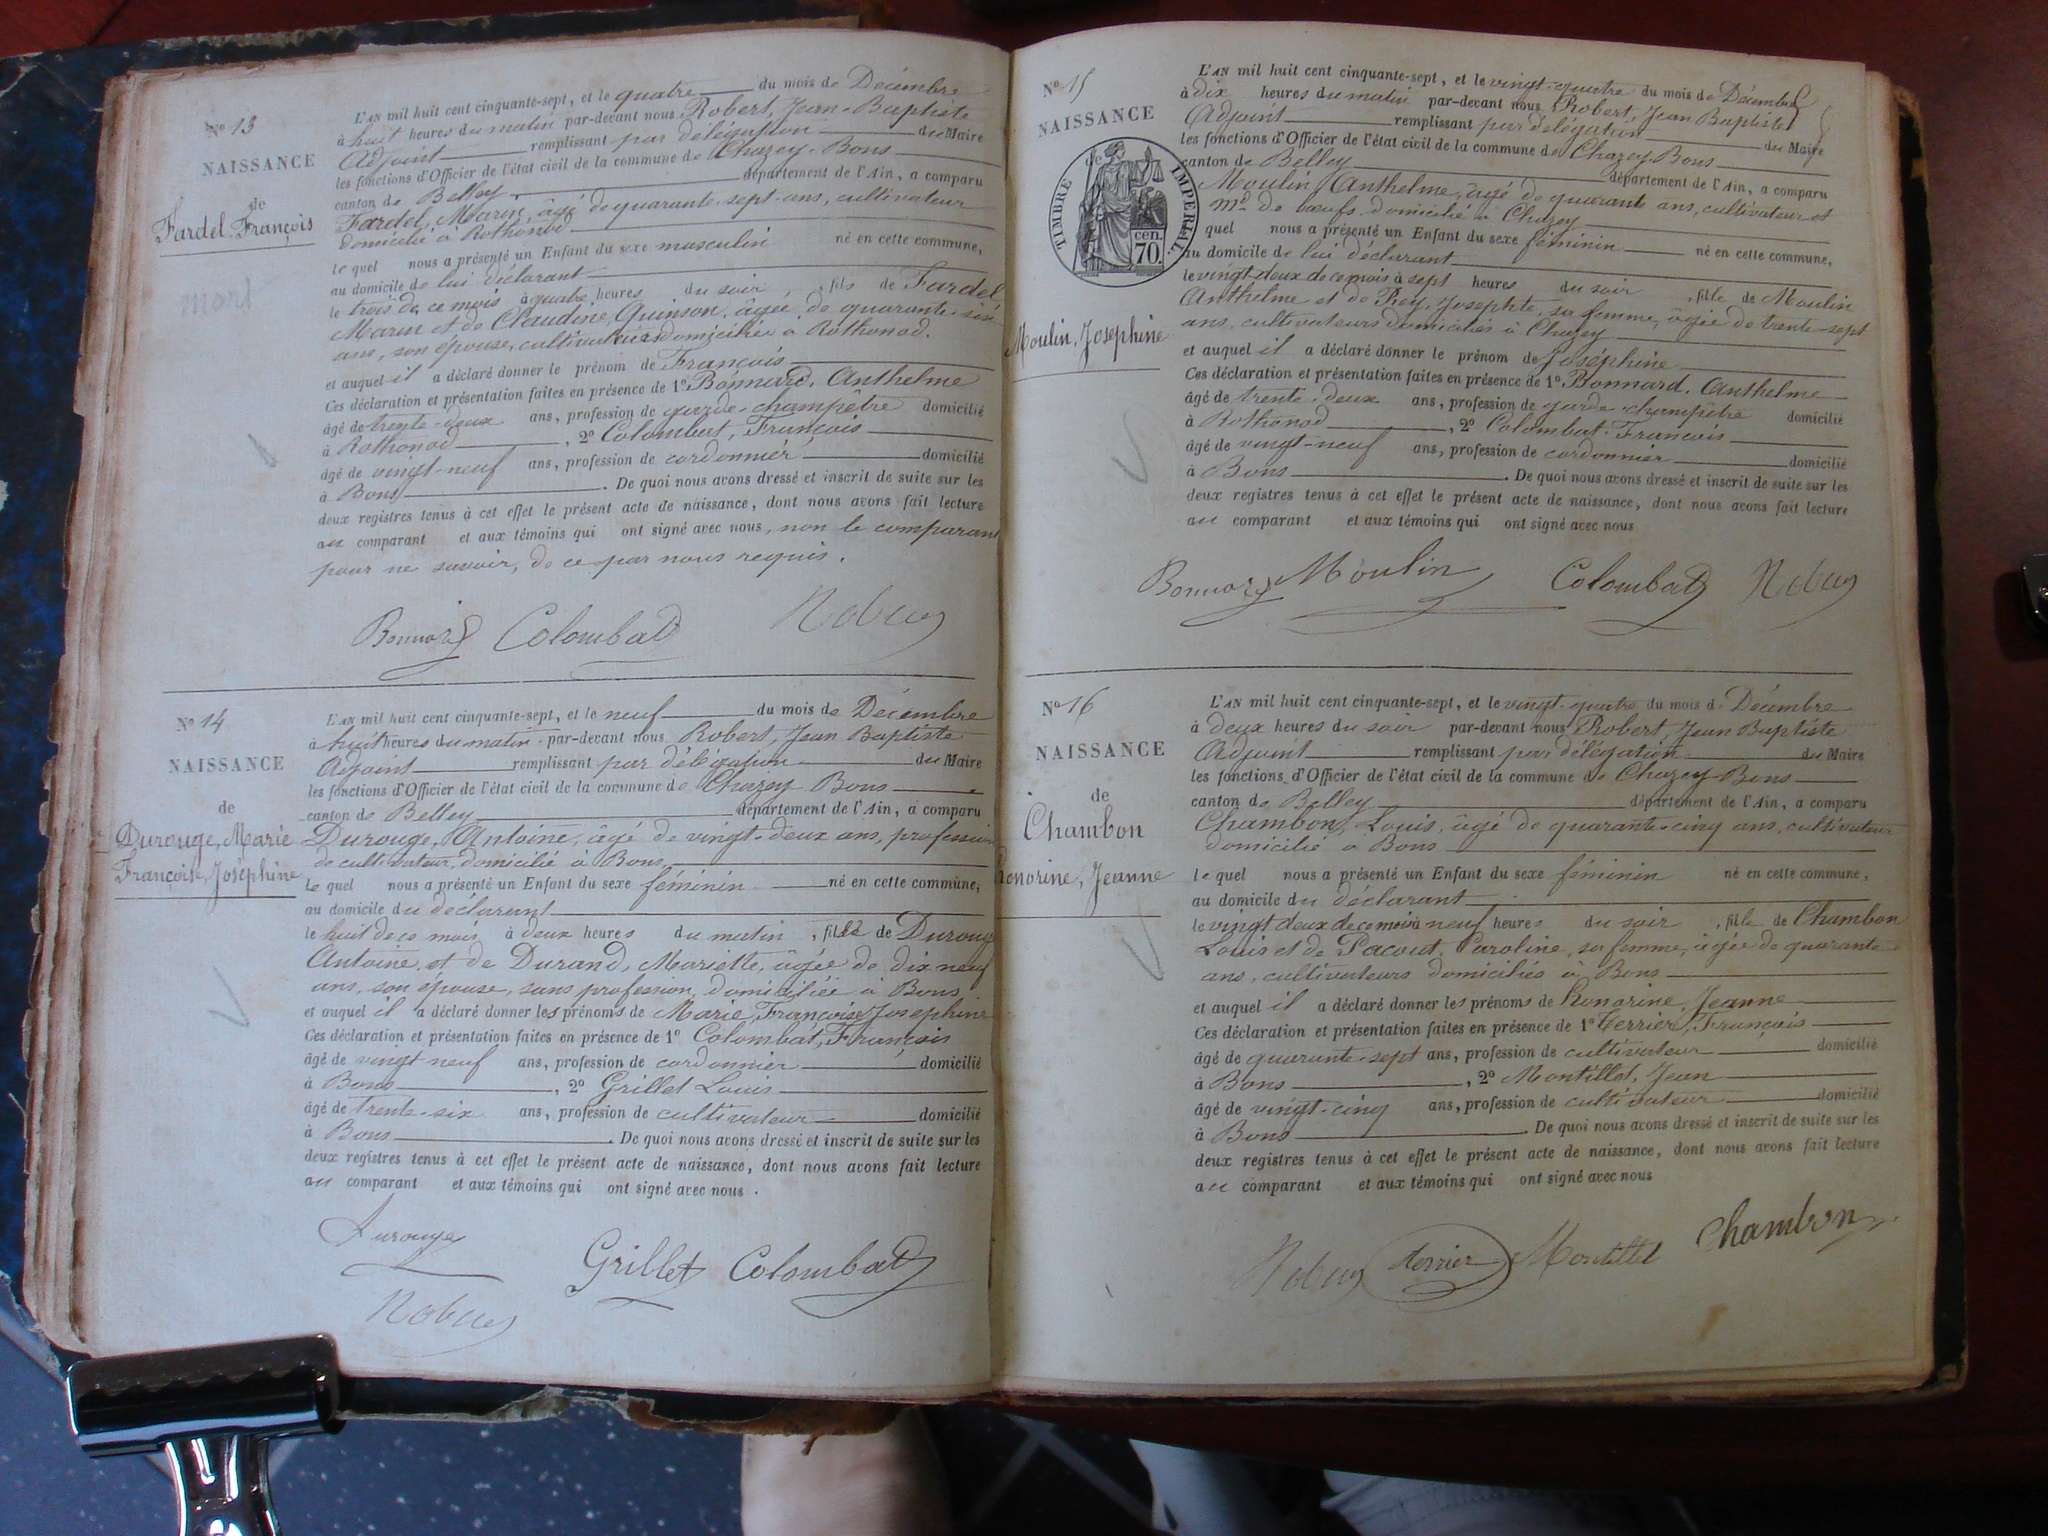 No 13
NAISSANCE
de
Fardel, François
mort
L'AN mil huit cent cinquante-sept, et le quatre du mois de Décembre
à huit heures du matin par-devant nous Robert, Jean-Baptiste
Adjoint remplissant par délégation du Maire
les fonctions d'Officier de l'état civil de la commune de Chazey-Bons
canton de Belley département de l'Ain, a comparu
Fardel, Marin, âgé de quarante-sept-ans, cultivateur
domicilié à Rothonod
le quel nous a présenté un Enfant du sexe masculin né en cette commune,
au domicile de lui déclarant
le trois de ce mois à quatre heures du soir, fils de Fardel,
Marin et de Claudine, Quinson, âgée de quarante-six
ans, son épouse, cultivateurs domiciliés à Rothonod.
et auquel il a déclaré donner le prénom de François
Ces déclaration et présentation faites en présence de 1o Bonnard, Anthelme
âgé de trente-deux ans, profession de garde-champêtre domicilié
à Rothonod, 2o Colombat, François
âgé de vingt-neuf ans, profession de cordonnier domicilié
à Bons. De quoi nous avons dressé et inscrit de suite sur les
deux registres tenus à cet effet le présent acte de naissance, dont nous avons fait lecture
au comparant et aux témoins qui ont signé avec nous, non le comparant
pour ne savoir, de ce par nous requis.
Bonnard Colombat
No 14
NAISSANCE
de
Durouge, Marie
Françoise, Joséphine
L'AN mil huit cent cinquante-sept, et le neuf du mois de Décembre
à huit heures du matin par-devant nous Robert, Jean Baptiste
Adjoint remplissant par délégation du Maire
les fonctions d'Officier de l'état civil de la commune de Chazey Bons
canton de Belley département de l'Ain, a comparu
Durouge, Antoine, âgé de vingt-deux ans, profession
de cultivateur, domicilié à Bons
le quel nous a présenté un Enfant du sexe féminin né en cette commune,
au domicile du déclarant
le huit de ce mois à deux heures du matin, fille de Durouge
Antoine et de Durand, Mariette, âgée de dix neuf
ans, son épouse, sans profession, domiciliée à Bons
et auquel il a déclaré donner les prénoms de Marie, Françoise, Josephine
Ces déclaration et présentation faites en présence de 1o Colombat, François
âgé de vingt neuf ans, profession de cordonnier domicilié
à Bons, 2o Grillet Louis
âgé de trente-six ans, profession de cultivateur domicilié
à Bons. De quoi nous avons dressé et inscrit de suite sur les
deux registres tenus à cet effet le présent acte de naissance, dont nous avons fait lecture
au comparant et aux témoins qui ont signé avec nous.
Durouge
Grillet Colombat
No 15
NAISSANCE
de
TIMBRE IMPERIAL
cen. 70.
Moulin, Joséphine
L'AN mil huit cent cinquante-sept, et le vingt-quatre du mois de Décembre
à dix heures du matin par-devant nous Robert, Jean Baptiste
Adjoint remplissant par délégation du Maire
les fonctions d'Officier de l'état civil de la commune de Chazey-Bons
canton de Belley département de l'Ain, a comparu
Moulin, Anthelme, âgé de quarante ans, cultivateur et
md de boeufs domicilié à Chazey
quel nous a présenté un Enfant du sexe féminin né en cette commune,
au domicile de lui déclarant
le vingt-deux de ce mois à sept heures du soir, fille de Moulin
Anthelme et de Rey, Josephte, sa femme, âgée de trente-sept
ans, cultivateurs domiciliés à Chazey
et auquel il a déclaré donner le prénom de Joséphine
Ces déclaration et présentation faites en présence de 1o Bonnard, Anthelme
âgé de trente-deux ans, profession de garde-champêtre domicilié
à Rothonod, 2o Colombat François
âgé de vingt-neuf ans, profession de cordonnier domicilié
à Bons. De quoi nous avons dressé et inscrit de suite sur les
deux registres tenus à cet effet le présent acte de naissance, dont nous avons fait lecture
au comparant et aux témoins qui ont signé avec nous
Bonnard Moulin Colombat
No 16
NAISSANCE
de
Chambon
honorine, Jeanne
L'AN mil huit cent cinquante-sept, et le vingt-quatre du mois de Décembre
à deux heures du soir par-devant nous Robert, Jean Baptiste
Adjoint remplissant par délégation du Maire
les fonctions d'Officier de l'état civil de la commune de Chazey-Bons
canton de Belley département de l'Ain, a comparu
Chambon, Louis, âgé de quarante-cinq ans, cultivateur
domicilié à Bons
le quel nous a présenté un Enfant du sexe féminin né en cette commune,
au domicile du déclarant
le vingt deux de ce mois à neuf heures du soir, fille de Chambon
Louis et de Pacout, Caroline, sa femme, âgée de quarante
ans, cultivateurs domiciliés à Bons
et auquel il a déclaré donner les prénoms de honorine, Jeanne
Ces déclaration et présentation faites en présence de 1o Terrier, François
âgé de quarante-sept ans, profession de cultivateur domicilié
à Bons, 2o Montillet, Jean
âgé de vingt-cinq ans, profession de cultivateur domicilié
à Bons. De quoi nous avons dressé et inscrit de suite sur les
deux registres tenus à cet effet le présent acte de naissance, dont nous avons fait lecture
au comparant et aux témoins qui ont signé avec nous
terrier Montillet Chambon